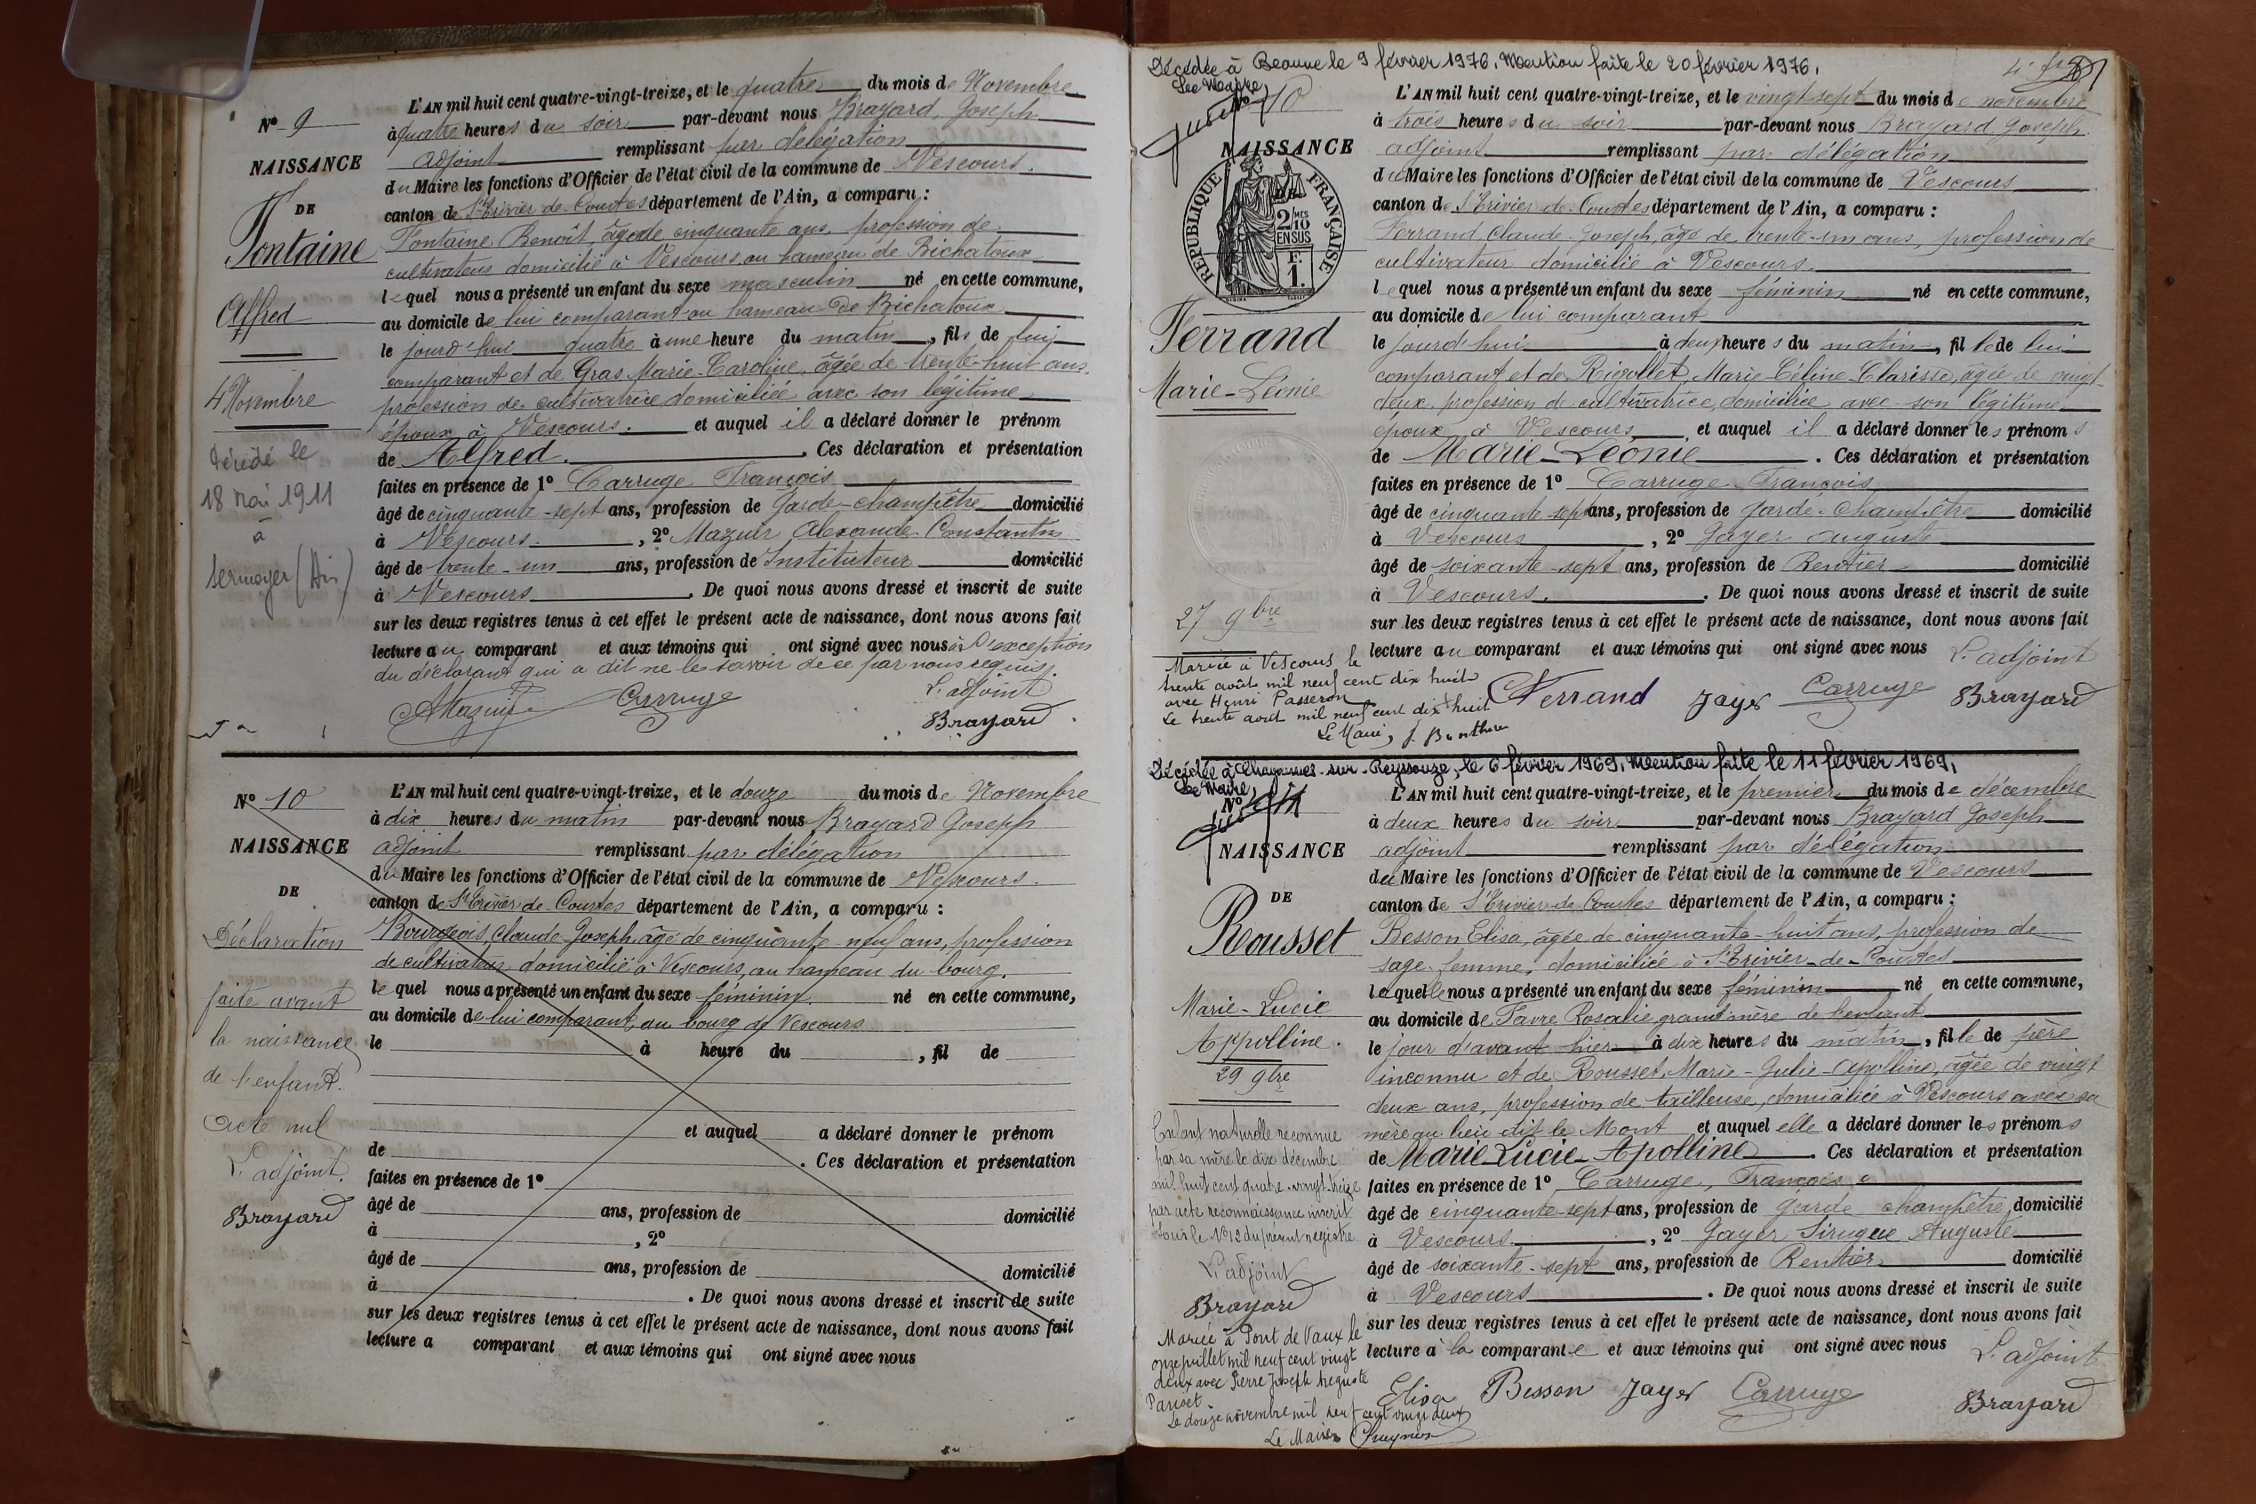 Nº 9
NAISSANCE
DE
Fontaine
Alfred
4 Novembre
Décédé le
18 mai 1911
à
Sermoyer (Ain)
L'AN mil huit cent quatre-vingt-treize, et le quatre du mois de Novembre
à quatre heures du soir par-devant nous Brayard Joseph
adjoint remplissant par délégation
du Maire les fonctions d'Officier de l'état civil de la commune de Vescours.
canton de St Trivier de Courtes département de l'Ain, a comparu :
Fontaine Benoît, âgé de cinquante ans, profession de
cultivateur domicilié à Vescours au hameau de Bichatoux
lequel nous a présenté un enfant du sexe masculin né en cette commune,
au domicile de lui comparant au hameau de Bichatoux
le jourd'hui quatre à une heure du matin, fils de lui
comparant et de Gras Marie-Caroline, âgée de trente-huit ans,
profession de cultivatrice domiciliée avec son légitime
époux à Vescours. et auquel il a déclaré donner le prénom
de Alfred. Ces déclaration et présentation
faites en présence de 1º Carruge François
âgé de cinquante-sept ans, profession de Garde-champêtre domicilié
à Vescours, 2º Mazuir Alexandre Constantin
âgé de trente-un ans, profession de Instituteur domicilié
à Vescours. De quoi nous avons dressé et inscrit de suite
sur les deux registres tenus à cet effet le présent acte de naissance, dont nous avons fait
lecture au comparant et aux témoins qui ont signé avec nous à l'exception
du déclarant qui a dit ne le savoir de ce par nous requis.
AMazuir Carruge L'adjoint
Brayard
Nº 10
NAISSANCE
DE
Déclaration
faite avant
la naissance
de l'enfant.
Acte nul
L'adjoint.
Brayard
L'AN mil huit cent quatre-vingt-treize, et le douze du mois de Novembre
à dix heures du matin par-devant nous Brayard Joseph
adjoint remplissant par délégation
du Maire les fonctions d'Officier de l'état civil de la commune de Vescours.
canton de St Trivier de Courtes département de l'Ain, a comparu :
Bourgeois, Claude-Joseph, âgé de cinquante-neuf ans, profession
de cultivateur domicilié à Vescours, au hameau du bourg.
lequel nous a présenté un enfant du sexe féminin né en cette commune,
au domicile de lui comparant, au bourg de Vescours
le à heure du , fil de
et auquel a déclaré donner le prénom
de . Ces déclaration et présentation
faites en présence de 1º
âgé de ans, profession de domicilié
à , 2º
âgé de ans, profession de domicilié
à . De quoi nous avons dressé et inscrit de suite
sur les deux registres tenus à cet effet le présent acte de naissance, dont nous avons fait
lecture a comparant et aux témoins qui ont signé avec nous
Décédée à Beaune le 9 février 1976, Mention faite le 20 février 1976.
Le Maire
Nº 10
NAISSANCE
DE
RÉPUBLIQUE FRANÇAISE
2/10 MES
EN SUS
F.
1.
Ferrand
Marie-Léonie
27 9bre
Mariée à Vescours le
trente août mil neuf cent dix huit
avec Henri Passeron
Le trente août mil neuf cent dix huit
Le Maire,
L'AN mil huit cent quatre-vingt-treize, et le vingt-sept du mois de novembre
à trois heures du soir par-devant nous Brayard Joseph
adjoint remplissant par délégation
du Maire les fonctions d'Officier de l'état civil de la commune de Vescours
canton de St Trivier de Courtes département de l'Ain, a comparu :
Ferrand, Claude-Joseph, âgé de trente-un ans, profession de
cultivateur domicilié à Vescours.
lequel nous a présenté un enfant du sexe féminin né en cette commune,
au domicile de lui comparant
le jourd'hui à deux heures du matin, fille de lui
comparant et de Rigollet, Marie-Céline-Clarisse, âgée de vingt-
deux, profession de cultivatrice, domiciliée avec son légitime
époux à Vescours, et auquel il a déclaré donner les prénoms
de Marie-Léonie. Ces déclaration et présentation
faites en présence de 1º Carruge François
âgé de cinquante-sept ans, profession de garde-champêtre domicilié
à Vescours, 2º Jayer Auguste
âgé de soixante-sept ans, profession de Rentier domicilié
à Vescours. De quoi nous avons dressé et inscrit de suite
sur les deux registres tenus à cet effet le présent acte de naissance, dont nous avons fait
lecture au comparant et aux témoins qui ont signé avec nous L'adjoint
Ferrand Jayer Carruge Brayard
Décédée à Chavannes-sur-Reyssouze, le 6 février 1969, Mention faite le 11 février 1969,
Le Maire,
Nº 11
NAISSANCE
DE
Rousset
Marie-Lucie
Appolline.
29 9bre
Enfant naturelle reconnue
par sa mère le dix décembre
mil huit cent quatre-vingt-treize
par acte reconnaissance inscrit
sous le Nº 12 du présent registre
L'adjoint
Brayard
Mariée à Pont de Vaux le
onze juillet mil neuf cent vingt
deux avec Pierre Joseph Auguste
Pariset
Le douze novembre mil neuf cent vingt deux
Le Maire
L'AN mil huit cent quatre-vingt-treize, et le premier du mois de décembre
à deux heures du soir par-devant nous Brayard Joseph
adjoint remplissant par délégation
du Maire les fonctions d'Officier de l'état civil de la commune de Vescours
canton de St Trivier de Courtes département de l'Ain, a comparu :
Besson Elisa, âgée de cinquante-huit ans, profession de
sage-femme, domiciliée à St Trivier-de-Courtes
laquelle nous a présenté un enfant du sexe féminin né en cette commune,
au domicile de Favre Rosalie, grand'mère de l'enfant
le jour d'avant-hier à dix heures du matin, fille de père
inconnu et de Rousset, Marie-Julie-Apolline, âgée de vingt
deux ans, profession de tailleuse, domiciliée à Vescours avec sa
mère au lieu dit le Mont et auquel elle a déclaré donner les prénoms
de Marie-Lucie-Apolline. Ces déclaration et présentation
faites en présence de 1º Carruge, François
âgé de cinquante-sept ans, profession de garde champêtre, domicilié
à Vescours, 2º Jayer Auguste
âgé de soixante-sept ans, profession de Rentier domicilié
à Vescours. De quoi nous avons dressé et inscrit de suite
sur les deux registres tenus à cet effet le présent acte de naissance, dont nous avons fait
lecture à la comparante et aux témoins qui ont signé avec nous L'adjoint
Elisa Besson Jayer Carruge Brayard